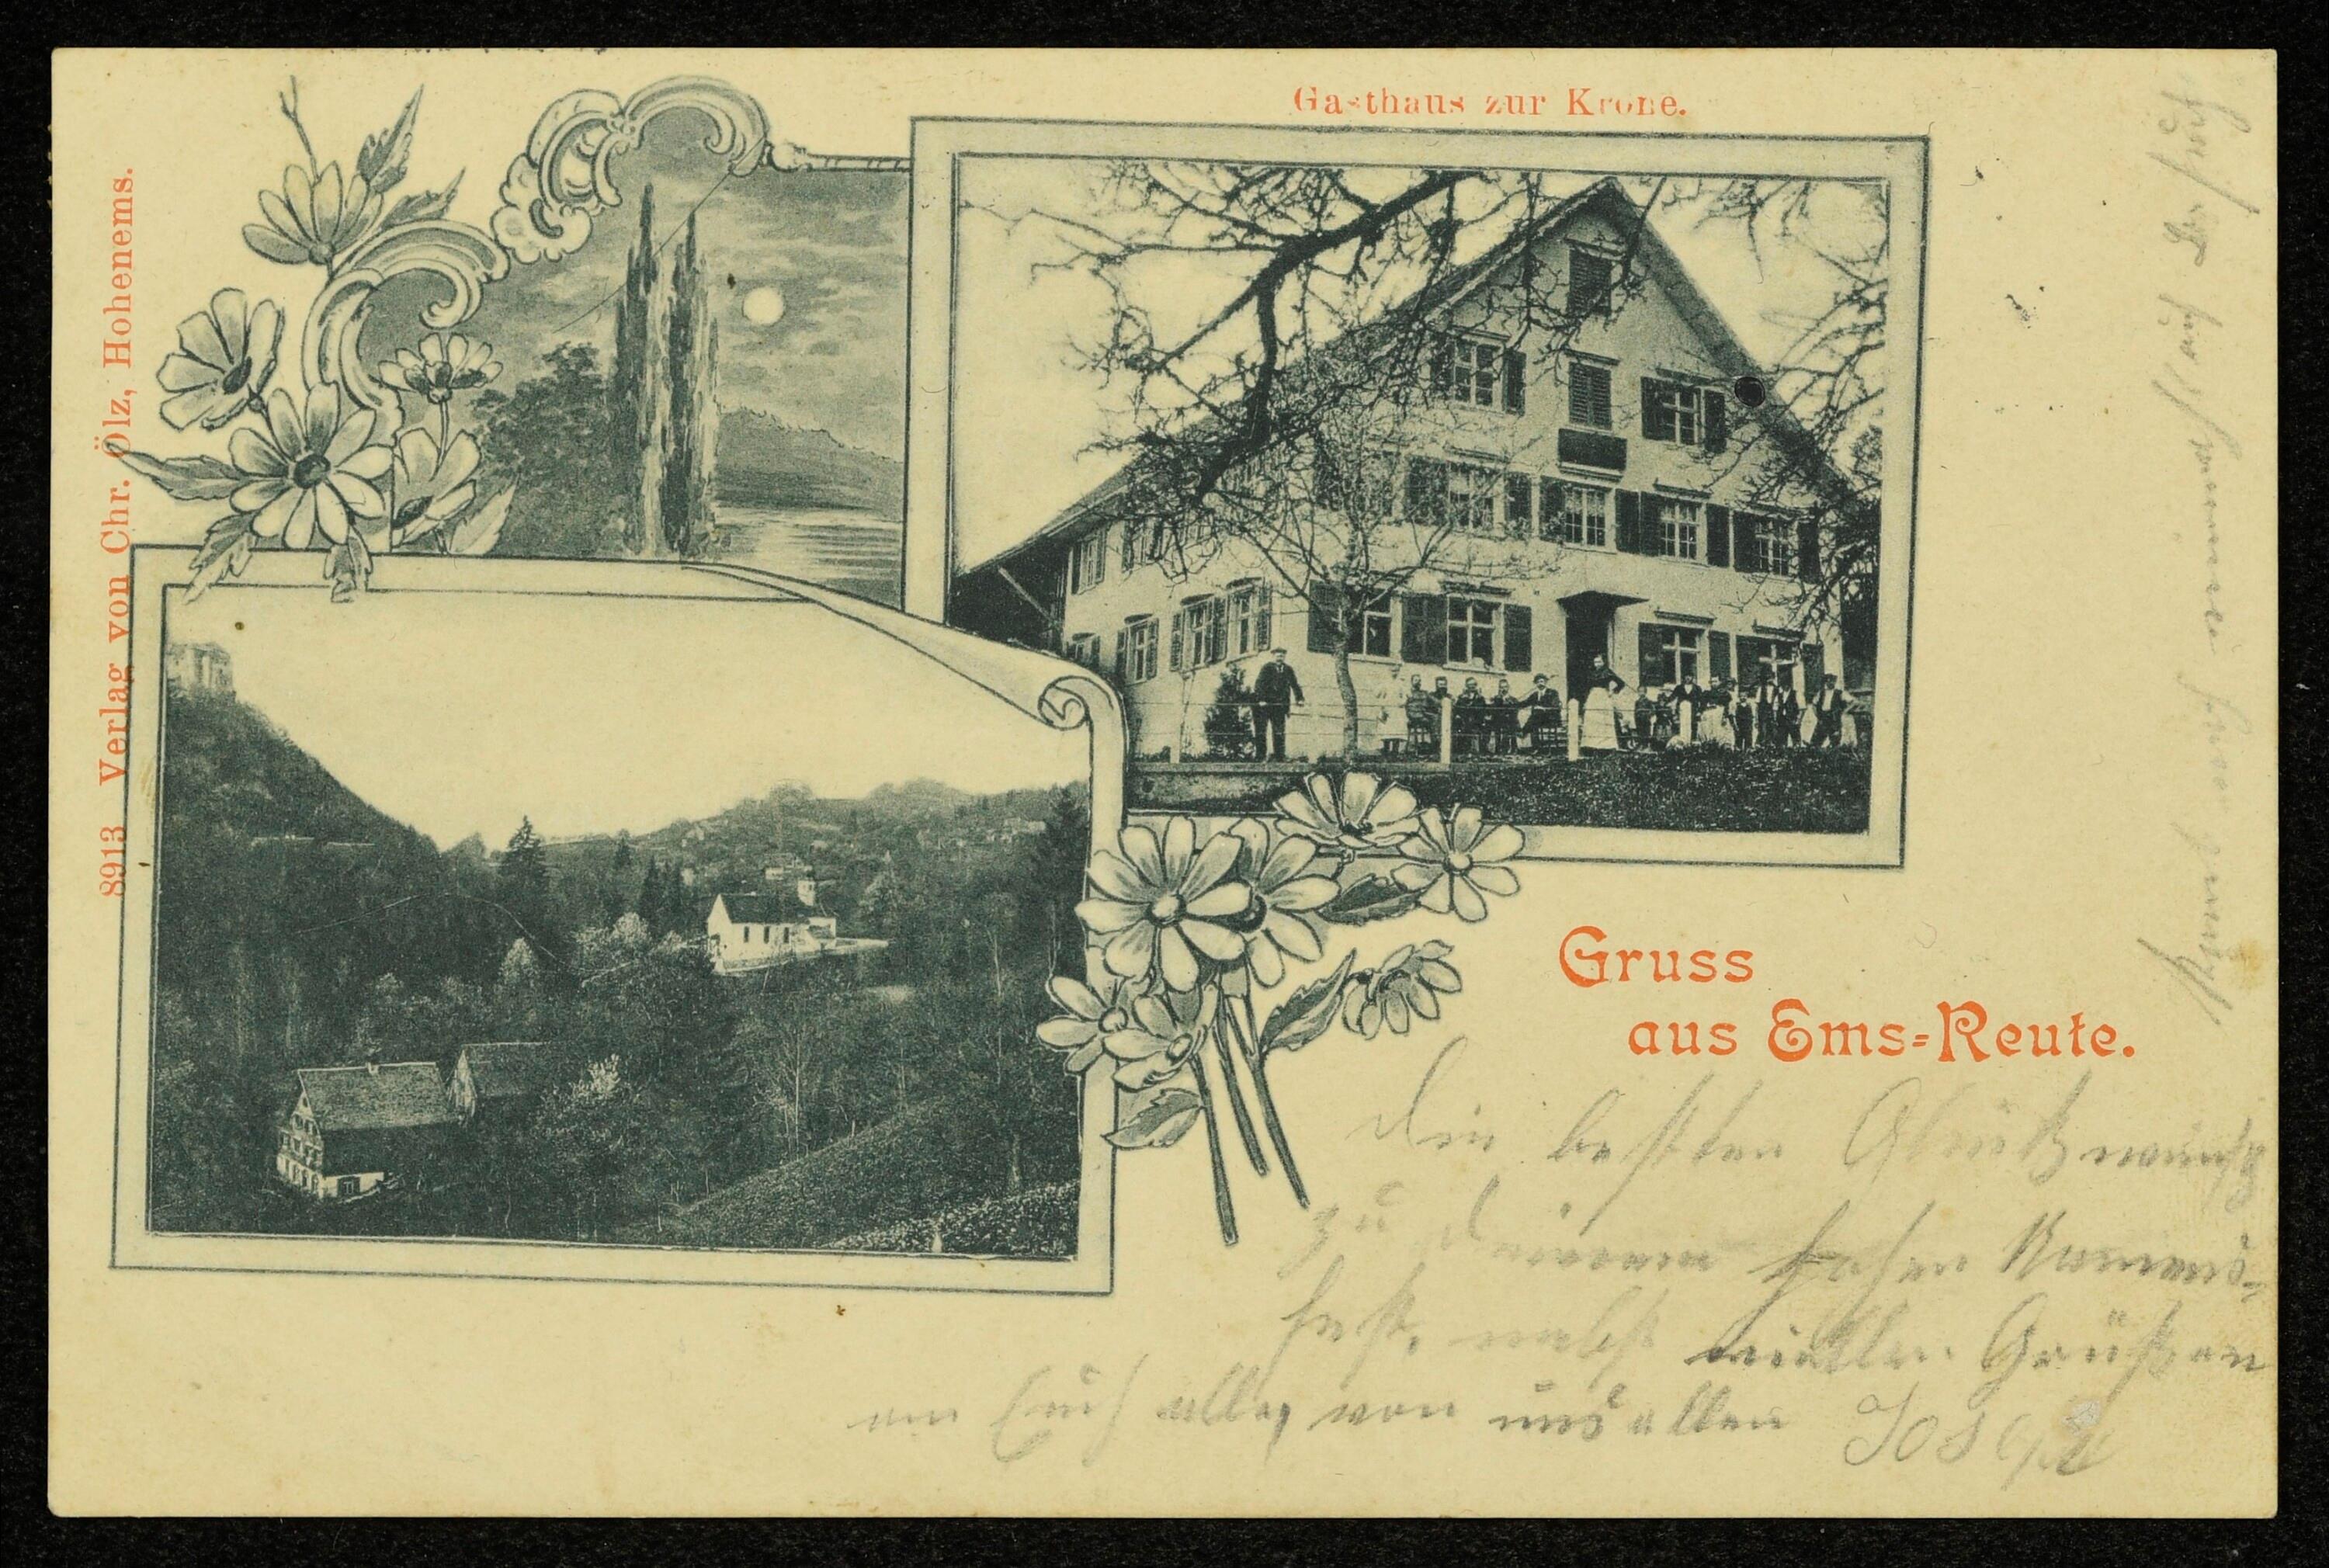 Gasthaus zur Krone.
8913 Verlag von Chr. Ölz, Hohenems.
Gruss
aus Ems=Reute.
Die besten Glückwünsche
zu deinem hohen Namens=
fest, nebst viellen Grüßen
an Euch alle, von uns allen Josef
auf der